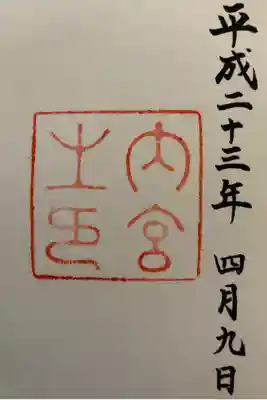 平成二十三年 四月九日
内宮
之印